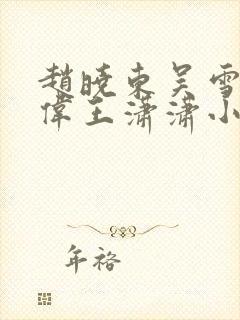 趙曉東吴雪
偉王瀟瀟小
年裕